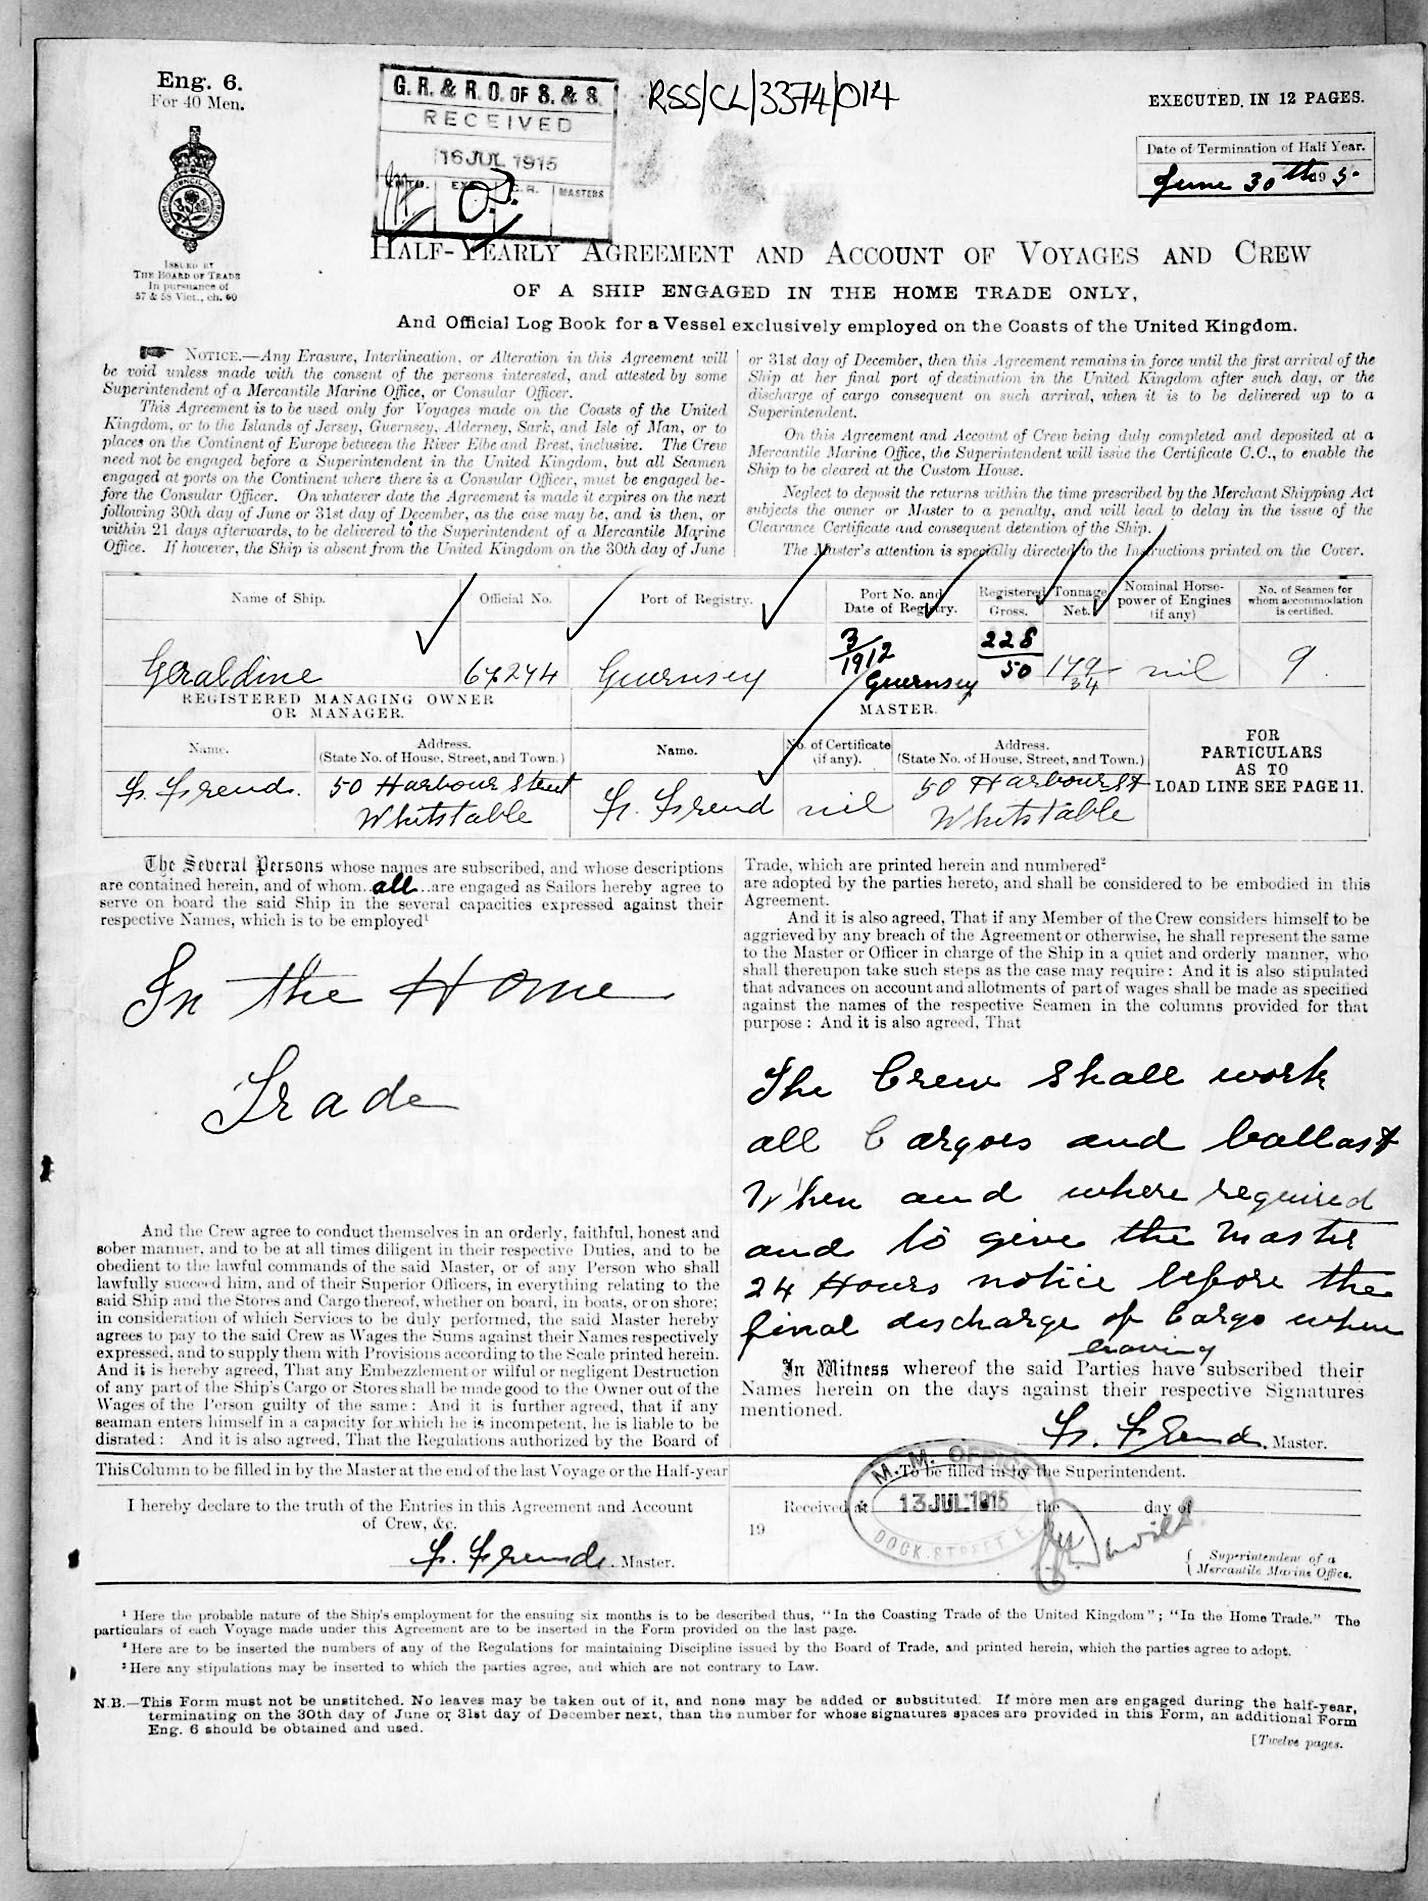 Eng. 6.
For 40 Men.
G. R. & R. O. OF S. & S.
RECEIVED
16 JUL 1915
MASTERS
RSS/CL/3374/014
EXECUTED, IN 12 PAGES.
Date of Termination of Half Year.
June 30th 19 5.
ISSUED BY
THE BOARD OF TRADE
In pursuance of
57 & 58 Vict., ch. 60
HALF-YEARLY AGREEMENT AND ACCOUNT OF VOYAGES AND CREW
OF A SHIP ENGAGED IN THE HOME TRADE ONLY,
And Official Log Book for a Vessel exclusively employed on the Coasts of the United Kingdom.
NOTICE.—Any Erasure, Interlineation, or Alteration in this Agreement will
be void unless made with the consent of the persons interested, and attested by some
Superintendent of a Mercantile Marine Office, or Consular Officer.
This Agreement is to be used only for Voyages made on the Coasts of the United
Kingdom, or to the Islands of Jersey, Guernsey, Alderney, Sark, and Isle of Man, or to
places on the Continent of Europe between the River Elbe and Brest, inclusive. The Crew
need not be engaged before a Superintendent in the United Kingdom, but all Seamen
engaged at ports on the Continent where there is a Consular Officer, must be engaged be-
fore the Consular Officer. On whatever date the Agreement is made it expires on the next
following 30th day of June or 31st day of December, as the case may be, and is then, or
within 21 days afterwards, to be delivered to the Superintendent of a Mercantile Marine
Office. If however, the Ship is absent from the United Kingdom on the 30th day of June
or 31st day of December, then this Agreement remains in force until the first arrival of the
Ship at her final port of destination in the United Kingdom after such day, or the
discharge of cargo consequent on such arrival, when it is to be delivered up to a
Superintendent.
On this Agreement and Account of Crew being duly completed and deposited at a
Mercantile Marine Office, the Superintendent will issue the Certificate C.C., to enable the
Ship to be cleared at the Custom House.
Neglect to deposit the returns within the time prescribed by the Merchant Shipping Act
subjects the owner or Master to a penalty, and will lead to delay in the issue of the
Clearance Certificate and consequent detention of the Ship.
The Master's attention is specially directed to the Instructions printed on the Cover.
Name of Ship.
Official No.
Port of Registry.
Port No. and
Date of Registry.
Registered Tonnage
Gross.
Net.
Nominal Horse-
power of Engines
(if any)
No. of Seamen for
whom accommodation
is certified.
Geraldine
Guernsey
3/1912
Guernsey
228
50
179
34
nil
9
REGISTERED MANAGING OWNER
OR MANAGER.
MASTER.
Name.
Address.
(State No. of House, Street, and Town.)
Name.
No. of Certificate
(if any).
Address.
(State No. of House, Street, and Town.)
FOR
PARTICULARS
AS TO
LOAD LINE SEE PAGE 11.
Frend.
50 Harbour Street
Whitstable
Frend
nil
50 Harbour St
Whitstable
The Several Persons whose names are subscribed, and whose descriptions
are contained herein, and of whom all are engaged as Sailors hereby agree to
serve on board the said Ship in the several capacities expressed against their
respective Names, which is to be employed¹
In the Home
Trade
And the Crew agree to conduct themselves in an orderly, faithful, honest and
sober manner, and to be at all times diligent in their respective Duties, and to be
obedient to the lawful commands of the said Master, or of any Person who shall
lawfully succeed him, and of their Superior Officers, in everything relating to the
said Ship and the Stores and Cargo thereof, whether on board, in boats, or on shore;
in consideration of which Services to be duly performed, the said Master hereby
agrees to pay to the said Crew as Wages the Sums against their Names respectively
expressed, and to supply them with Provisions according to the Scale printed herein.
And it is hereby agreed, That any Embezzlement or wilful or negligent Destruction
of any part of the Ship's Cargo or Stores shall be made good to the Owner out of the
Wages of the Person guilty of the same: And it is further agreed, that if any
seaman enters himself in a capacity for which he is incompetent, he is liable to be
disrated: And it is also agreed, That the Regulations authorized by the Board of
Trade, which are printed herein and numbered²
are adopted by the parties hereto, and shall be considered to be embodied in this
Agreement.
And it is also agreed, That if any Member of the Crew considers himself to be
aggrieved by any breach of the Agreement or otherwise, he shall represent the same
to the Master or Officer in charge of the Ship in a quiet and orderly manner, who
shall thereupon take such steps as the case may require: And it is also stipulated
that advances on account and allotments of part of wages shall be made as specified
against the names of the respective Seamen in the columns provided for that
purpose: And it is also agreed, That
The Crew shall work
all Cargoes and ballast
When and where required
and to give the Master
24 Hours notice before the
final discharge of Cargo when
leaving
In Witness whereof the said Parties have subscribed their
Names herein on the days against their respective Signatures
mentioned.
Frend. Master.
This Column to be filled in by the Master at the end of the last Voyage or the Half-year
I hereby declare to the truth of the Entries in this Agreement and Account
of Crew, &c.
Frend. Master.
To be filled in by the Superintendent.
Received at the day of
19
M. M. OFFICE
13 JUL 1915
DOCK STREET E.
Superintendent of a
Mercantile Marine Office.
¹ Here the probable nature of the Ship's employment for the ensuing six months is to be described thus, "In the Coasting Trade of the United Kingdom"; "In the Home Trade." The
particulars of each Voyage made under this Agreement are to be inserted in the Form provided on the last page.
² Here are to be inserted the numbers of any of the Regulations for maintaining Discipline issued by the Board of Trade, and printed herein, which the parties agree to adopt.
³ Here any stipulations may be inserted to which the parties agree, and which are not contrary to Law.
N.B.—This Form must not be unstitched. No leaves may be taken out of it, and none may be added or substituted. If more men are engaged during the half-year,
terminating on the 30th day of June or 31st day of December next, than the number for whose signatures spaces are provided in this Form, an additional Form
Eng. 6 should be obtained and used.
[Twelve pages.